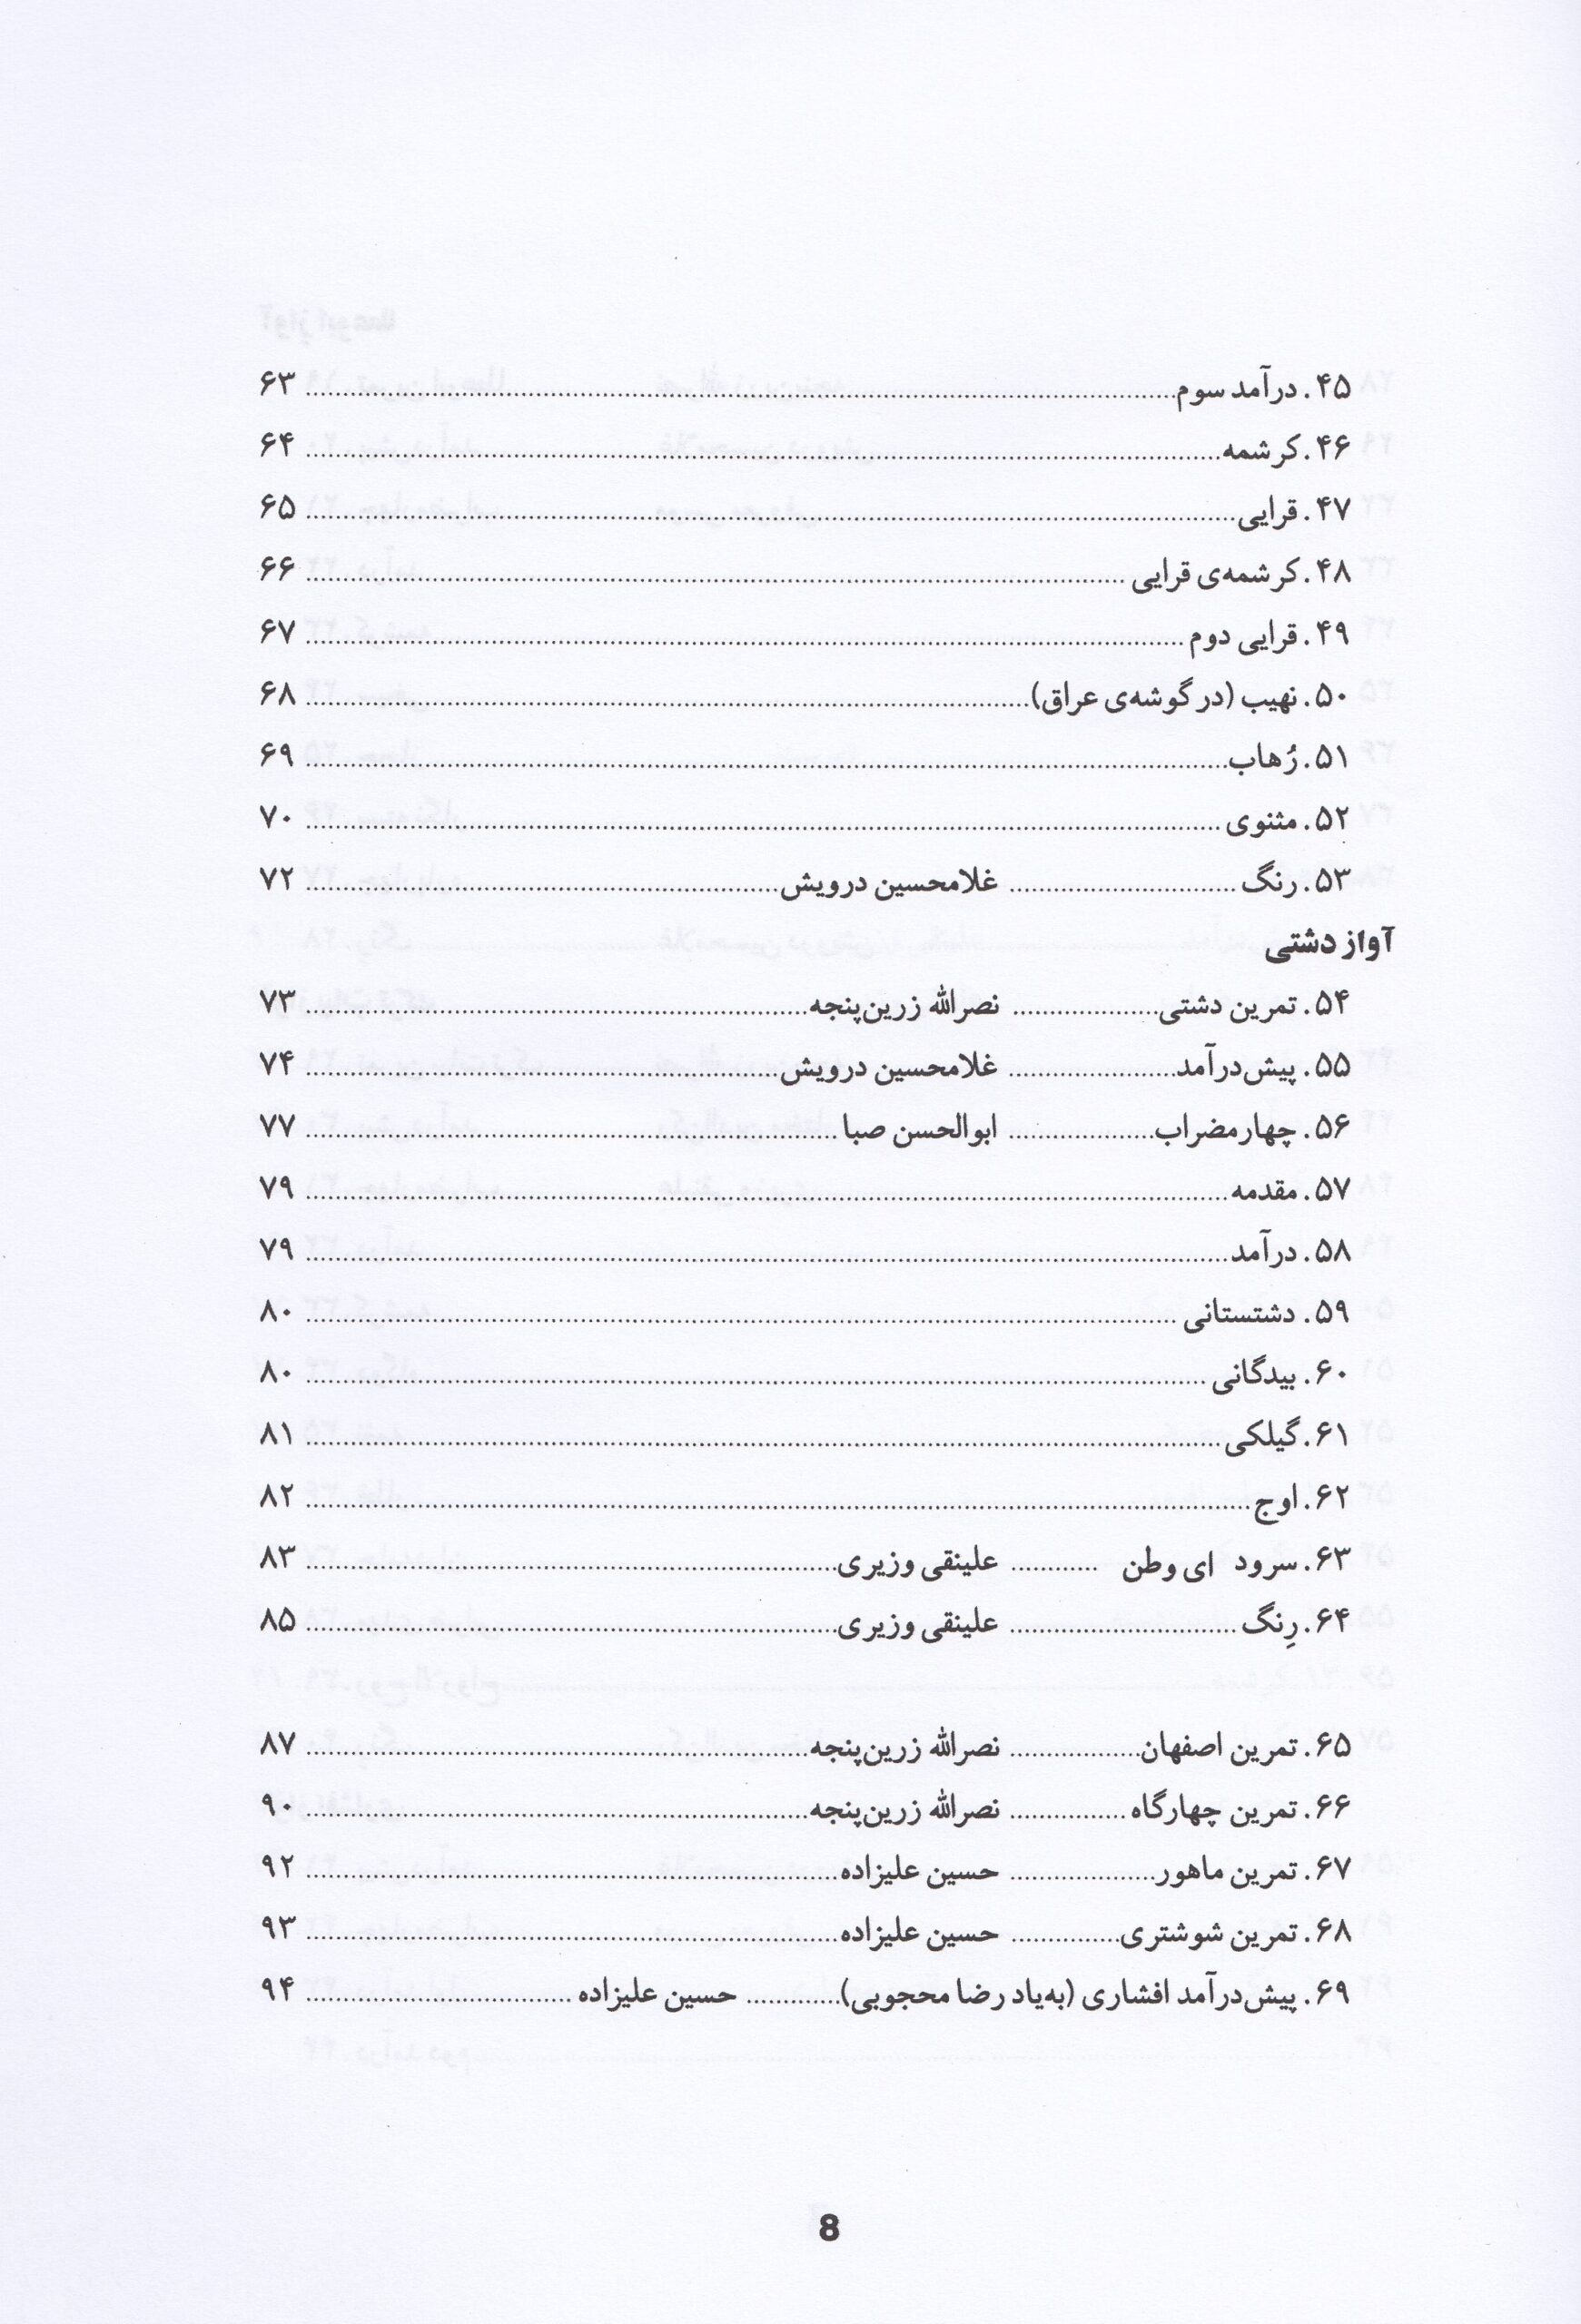 ۴۵. درآمد سوم ........ ۶۳
۴۶. کرشمه ........ ۶۴
۴۷. قرایی ........ ۶۵
۴۸. کرشمه‌ی قرایی ........ ۶۶
۴۹. قرایی دوم ........ ۶۷
۵۰. نهیب (در گوشه‌ی عراق) ........ ۶۸
۵۱. رُهاب ........ ۶۹
۵۲. مثنوی ........ ۷۰
۵۳. رنگ ........ غلامحسین درویش ........ ۷۲
آواز دشتی
۵۴. تمرین دشتی ........ نصرالله زرین‌پنجه ........ ۷۳
۵۵. پیش‌درآمد ........ غلامحسین درویش ........ ۷۴
۵۶. چهارمضراب ........ ابوالحسن صبا ........ ۷۷
۵۷. مقدمه ........ ۷۹
۵۸. درآمد ........ ۷۹
۵۹. دشتستانی ........ ۸۰
۶۰. بیدگانی ........ ۸۰
۶۱. گیلکی ........ ۸۱
۶۲. اوج ........ ۸۲
۶۳. سرود ای وطن ........ علینقی وزیری ........ ۸۳
۶۴. رِنگ ........ علینقی وزیری ........ ۸۵
۶۵. تمرین اصفهان ........ نصرالله زرین‌پنجه ........ ۸۷
۶۶. تمرین چهارگاه ........ نصرالله زرین‌پنجه ........ ۹۰
۶۷. تمرین ماهور ........ حسین علیزاده ........ ۹۲
۶۸. تمرین شوشتری ........ حسین علیزاده ........ ۹۳
۶۹. پیش‌درآمد افشاری (به‌یاد رضا محجوبی) ........ حسین علیزاده ........ ۹۴
8